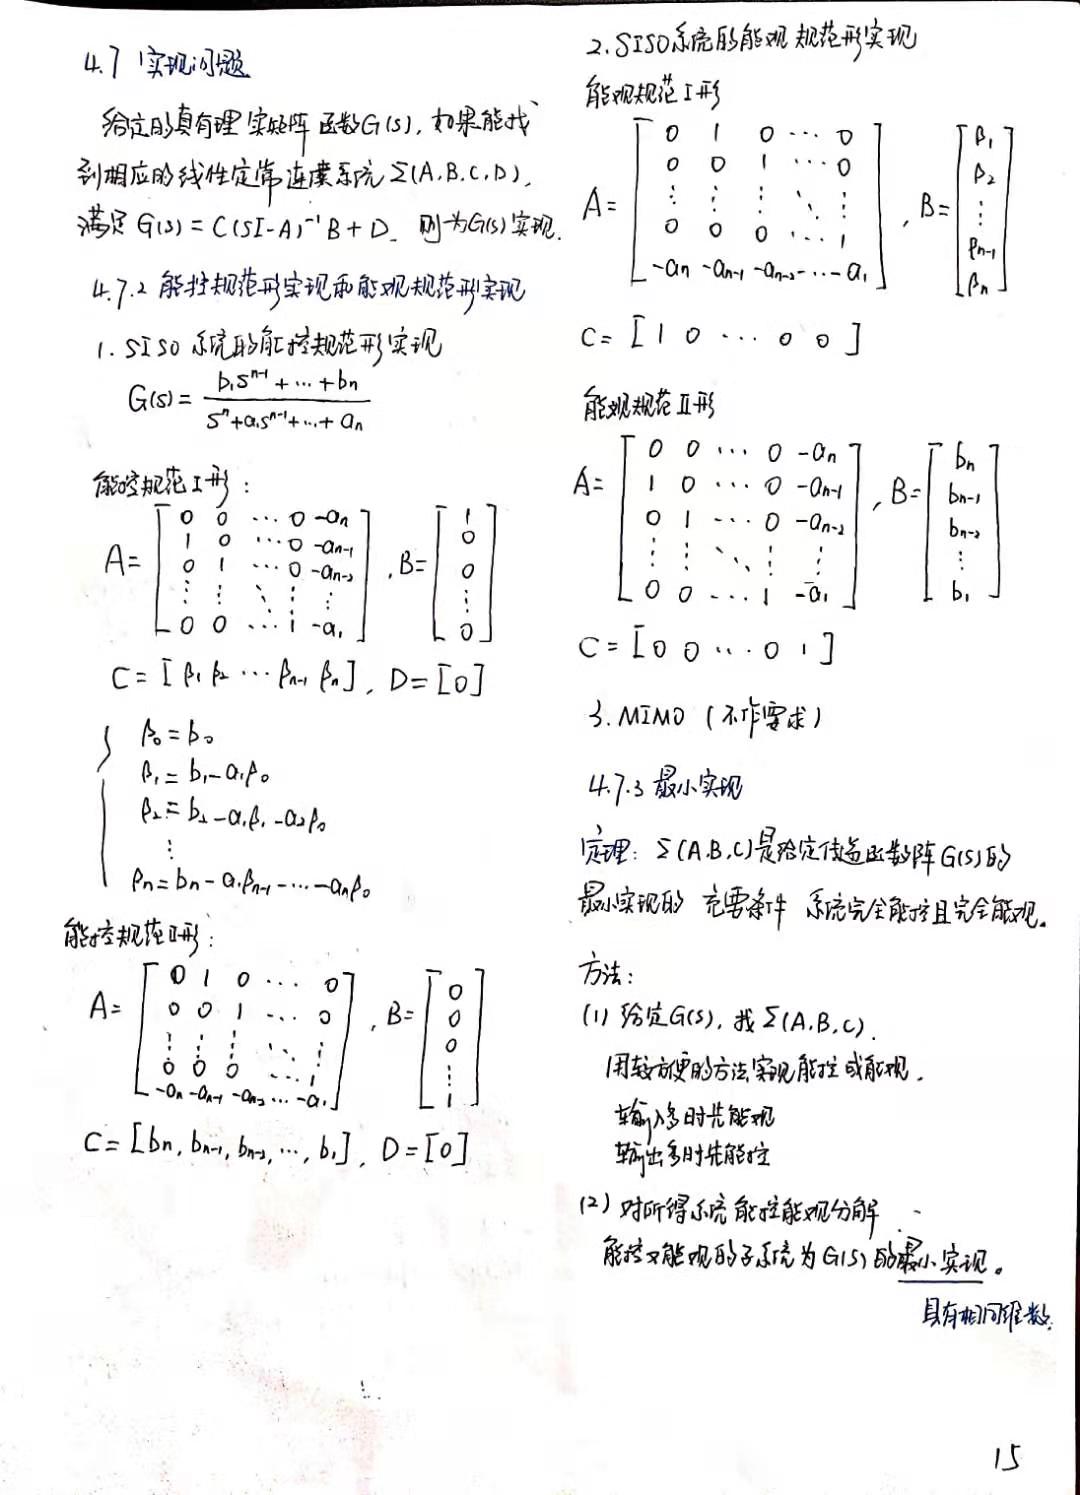 4.7 实现问题
给定的真有理实矩阵函数G(s),如果能找
到相应的线性定常连续系统Σ(A.B.C.D),
满足 G(s)=C(SI-A)⁻¹B+D 则为G(s)实现.
4.7.2 能控规范形实现和能观规范形实现
1. SISO 系统的能控规范形实现
G(s)= (b₁sⁿ⁻¹+…+bn)/(sⁿ+a₁sⁿ⁻¹+…+an)
能控规范I形:
A= [0 0 … 0 -an
1 0 … 0 -an-1
0 1 … 0 -an-2
⋮ ⋮ ⋱ ⋮ ⋮
0 0 … 1 -a₁], B= [1 0 0 ⋮ 0]
C=[β₁ β₂ … βn-1 βn], D=[0]
β₀=b₀
β₁=b₁-a₁β₀
β₂=b₂-a₁β₁-a₂β₀
⋮
βn=bn-a₁βn-1-…-anβ₀
能控规范II形:
A= [0 1 0 … 0
0 0 1 … 0
⋮ ⋮ ⋮ ⋱ ⋮
0 0 0 1
-an -an-1 -an-2 … -a₁], B= [0 0 0 ⋮ 1]
C=[bn, bn-1, bn-2, …, b₁], D=[0]
2. SISO系统的能观规范形实现
能观规范I形
A= [0 1 0 … 0
0 0 1 … 0
⋮ ⋮ ⋮ ⋱ ⋮
0 0 0 … 1
-an -an-1 -an-2 … -a₁], B= [β₁ β₂ ⋮ βn-1 βn]
C=[1 0 … 0 0]
能观规范II形
A= [0 0 … 0 -an
1 0 … 0 -an-1
0 1 … 0 -an-2
⋮ ⋮ ⋱ ⋮ ⋮
0 0 … 1 -a₁], B= [bn bn-1 bn-2 ⋮ b₁]
C=[0 0 … 0 1]
3. MIMO (不作要求)
4.7.3 最小实现
定理: Σ(A.B.C)是给定传递函数阵G(s)的
最小实现的 充要条件 系统完全能控且完全能观。
方法:
(1) 给定G(s), 找Σ(A,B,C).
用较方便的方法实现能控或能观.
输入多时先能观
输出多时先能控
(2) 对所得系统能控能观分解
能控又能观的子系统为G(s)的最小实现。
具有相同维数.
15